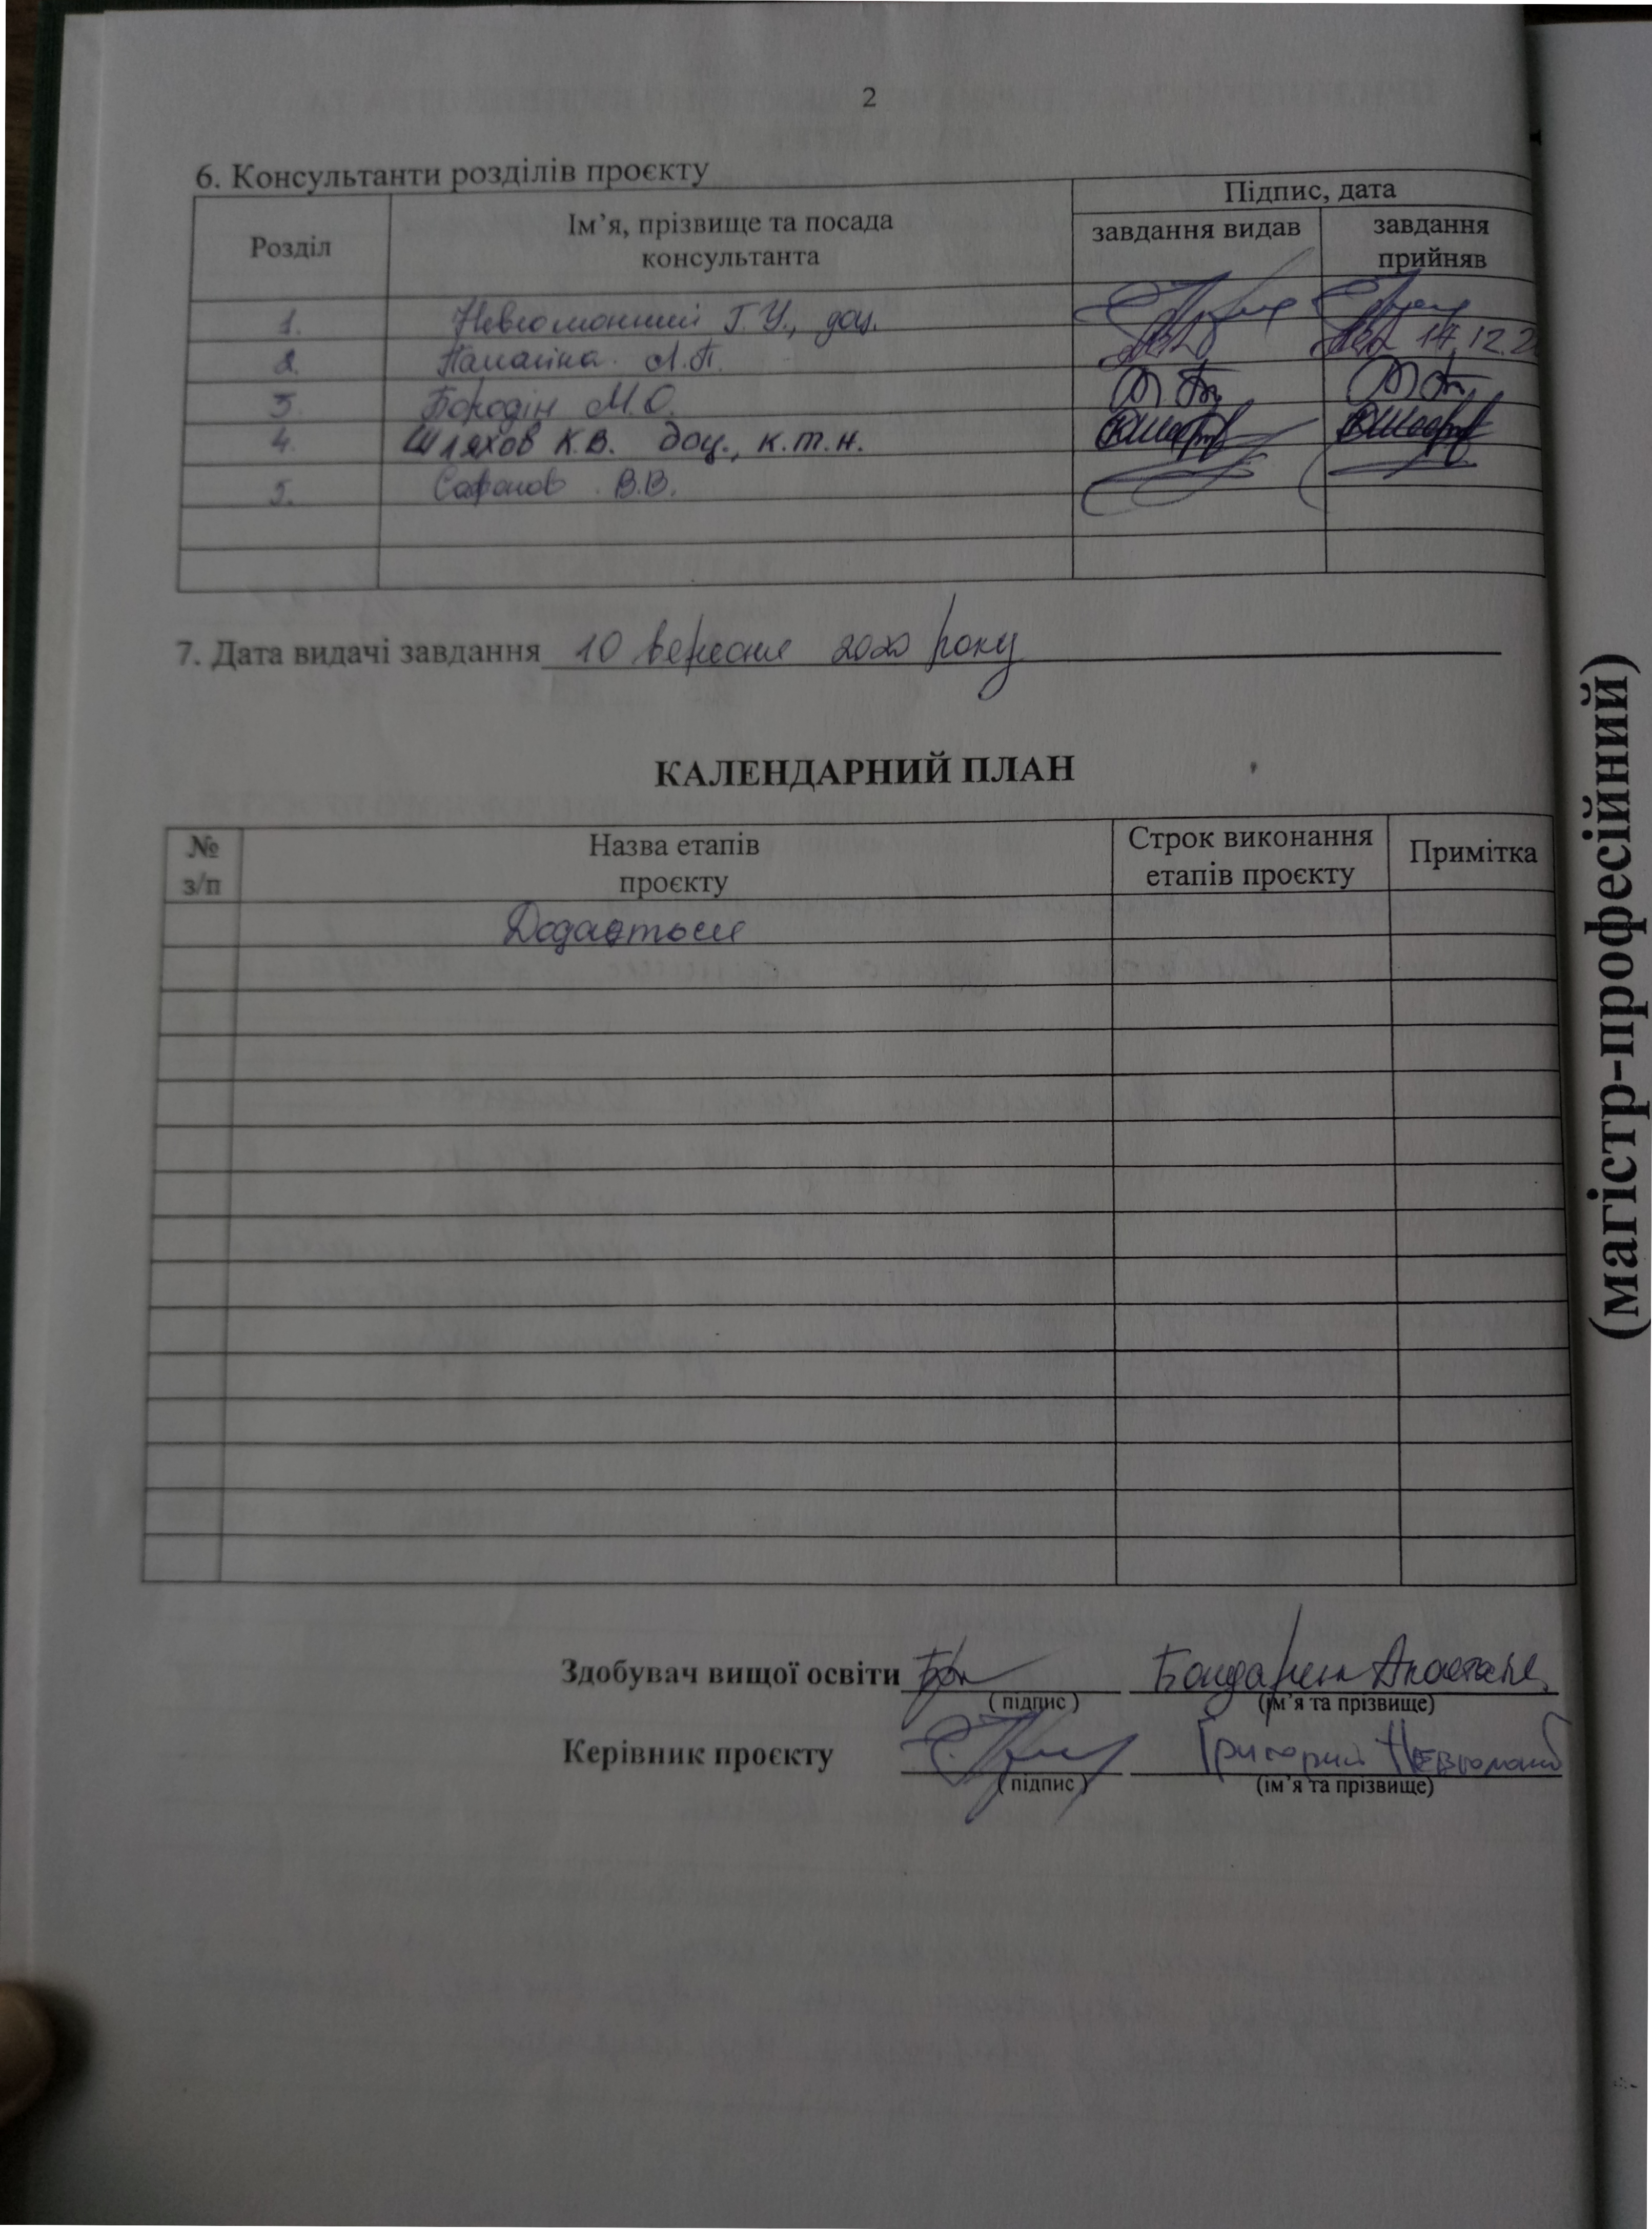 2
6. Консультанти розділів проєкту
Розділ
Ім’я, прізвище та посада
консультанта
Підпис, дата
завдання видав
завдання
прийняв
1. Невгомонний Г.У., доц.
2. Л.П. 14.12.2
3. Бородін М.О.
4. Шляхов К.В. доц., к.т.н.
5. Сафонов В.В.
7. Дата видачі завдання 10 вересня 2020 року
КАЛЕНДАРНИЙ ПЛАН
№
з/п
Назва етапів
проєкту
Строк виконання
етапів проєкту
Примітка
Додається
Здобувач вищої освіти
(підпис)
(ім’я та прізвище)
Керівник проєкту Григорий
(підпис)
(ім’я та прізвище)
(магістр-професійний)